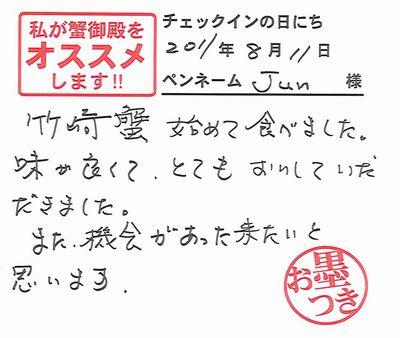 私が蟹御殿を
オススメ
します!!
チェックインの日にち
2011年8月11日
ペンネーム Jun 様
竹崎蟹 始めて食べました。
味が良くて、とても おいしていただ
だきました。
また、機会があった来たいと
思います.
お墨
つき